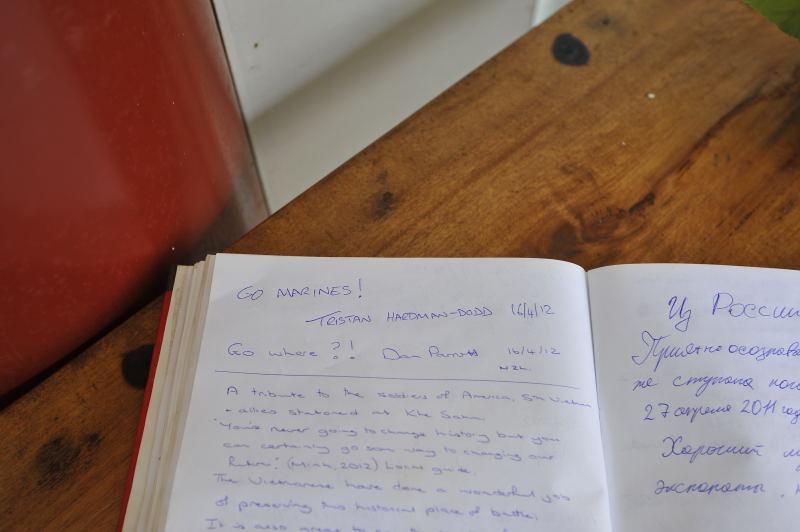 GO MARINES!
TRISTAN HARDMAN-DODD 16/4/12
Go where?! Dan 16/4/12
NZL.
A tribute to the soldiers of America, Sth Vietnam
+ allies stationed at Khe Sahn
"You're never going to change history but you
can certainly go some way to changing our
future." (Minh, 2012) Local guide.
The Vietnamese have done a wonderful job
of preserving this historical place of battle.
It is also great to see the
Из России
Приятно осознава
же ступала нога
27 апреля 2011 год
Хороший
экспонаты,